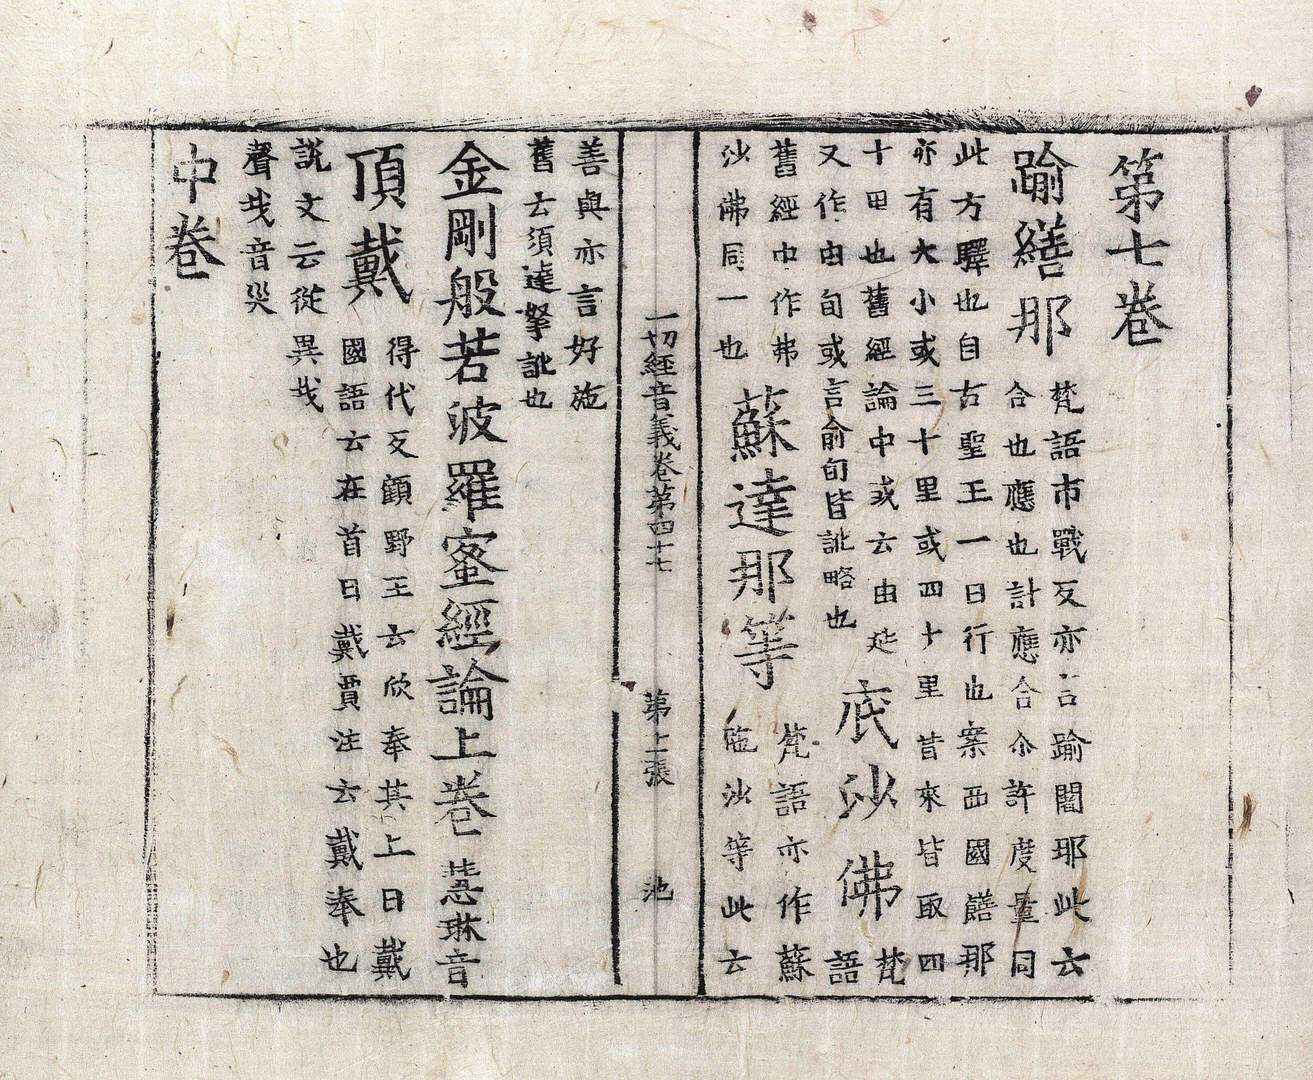 第七卷
踰繕那 梵語市戰反亦言踰闍耶此云
合也應也計應合尒許度量同
此方驛也自古聖王一日行也案西國繕那
亦有大小或三十里或四十里昔來皆取四
十里也舊經論中或云由延
又作由旬或言俞旬皆訛略也 底沙佛 梵語
舊經中作弗
沙佛同一也 蘇達那等 梵語亦作蘇
陁沙等此云
一切經音義卷第四十七 第上張 池
善與亦言好施
舊云須達拏訛也
金剛般若波羅蜜經論上卷 慧琳音
頂戴 得代反顧野王云欣奉其上曰戴
國語云在首曰戴賈注云戴奉也
說文云從異𢦏
聲𢦏音災
中卷